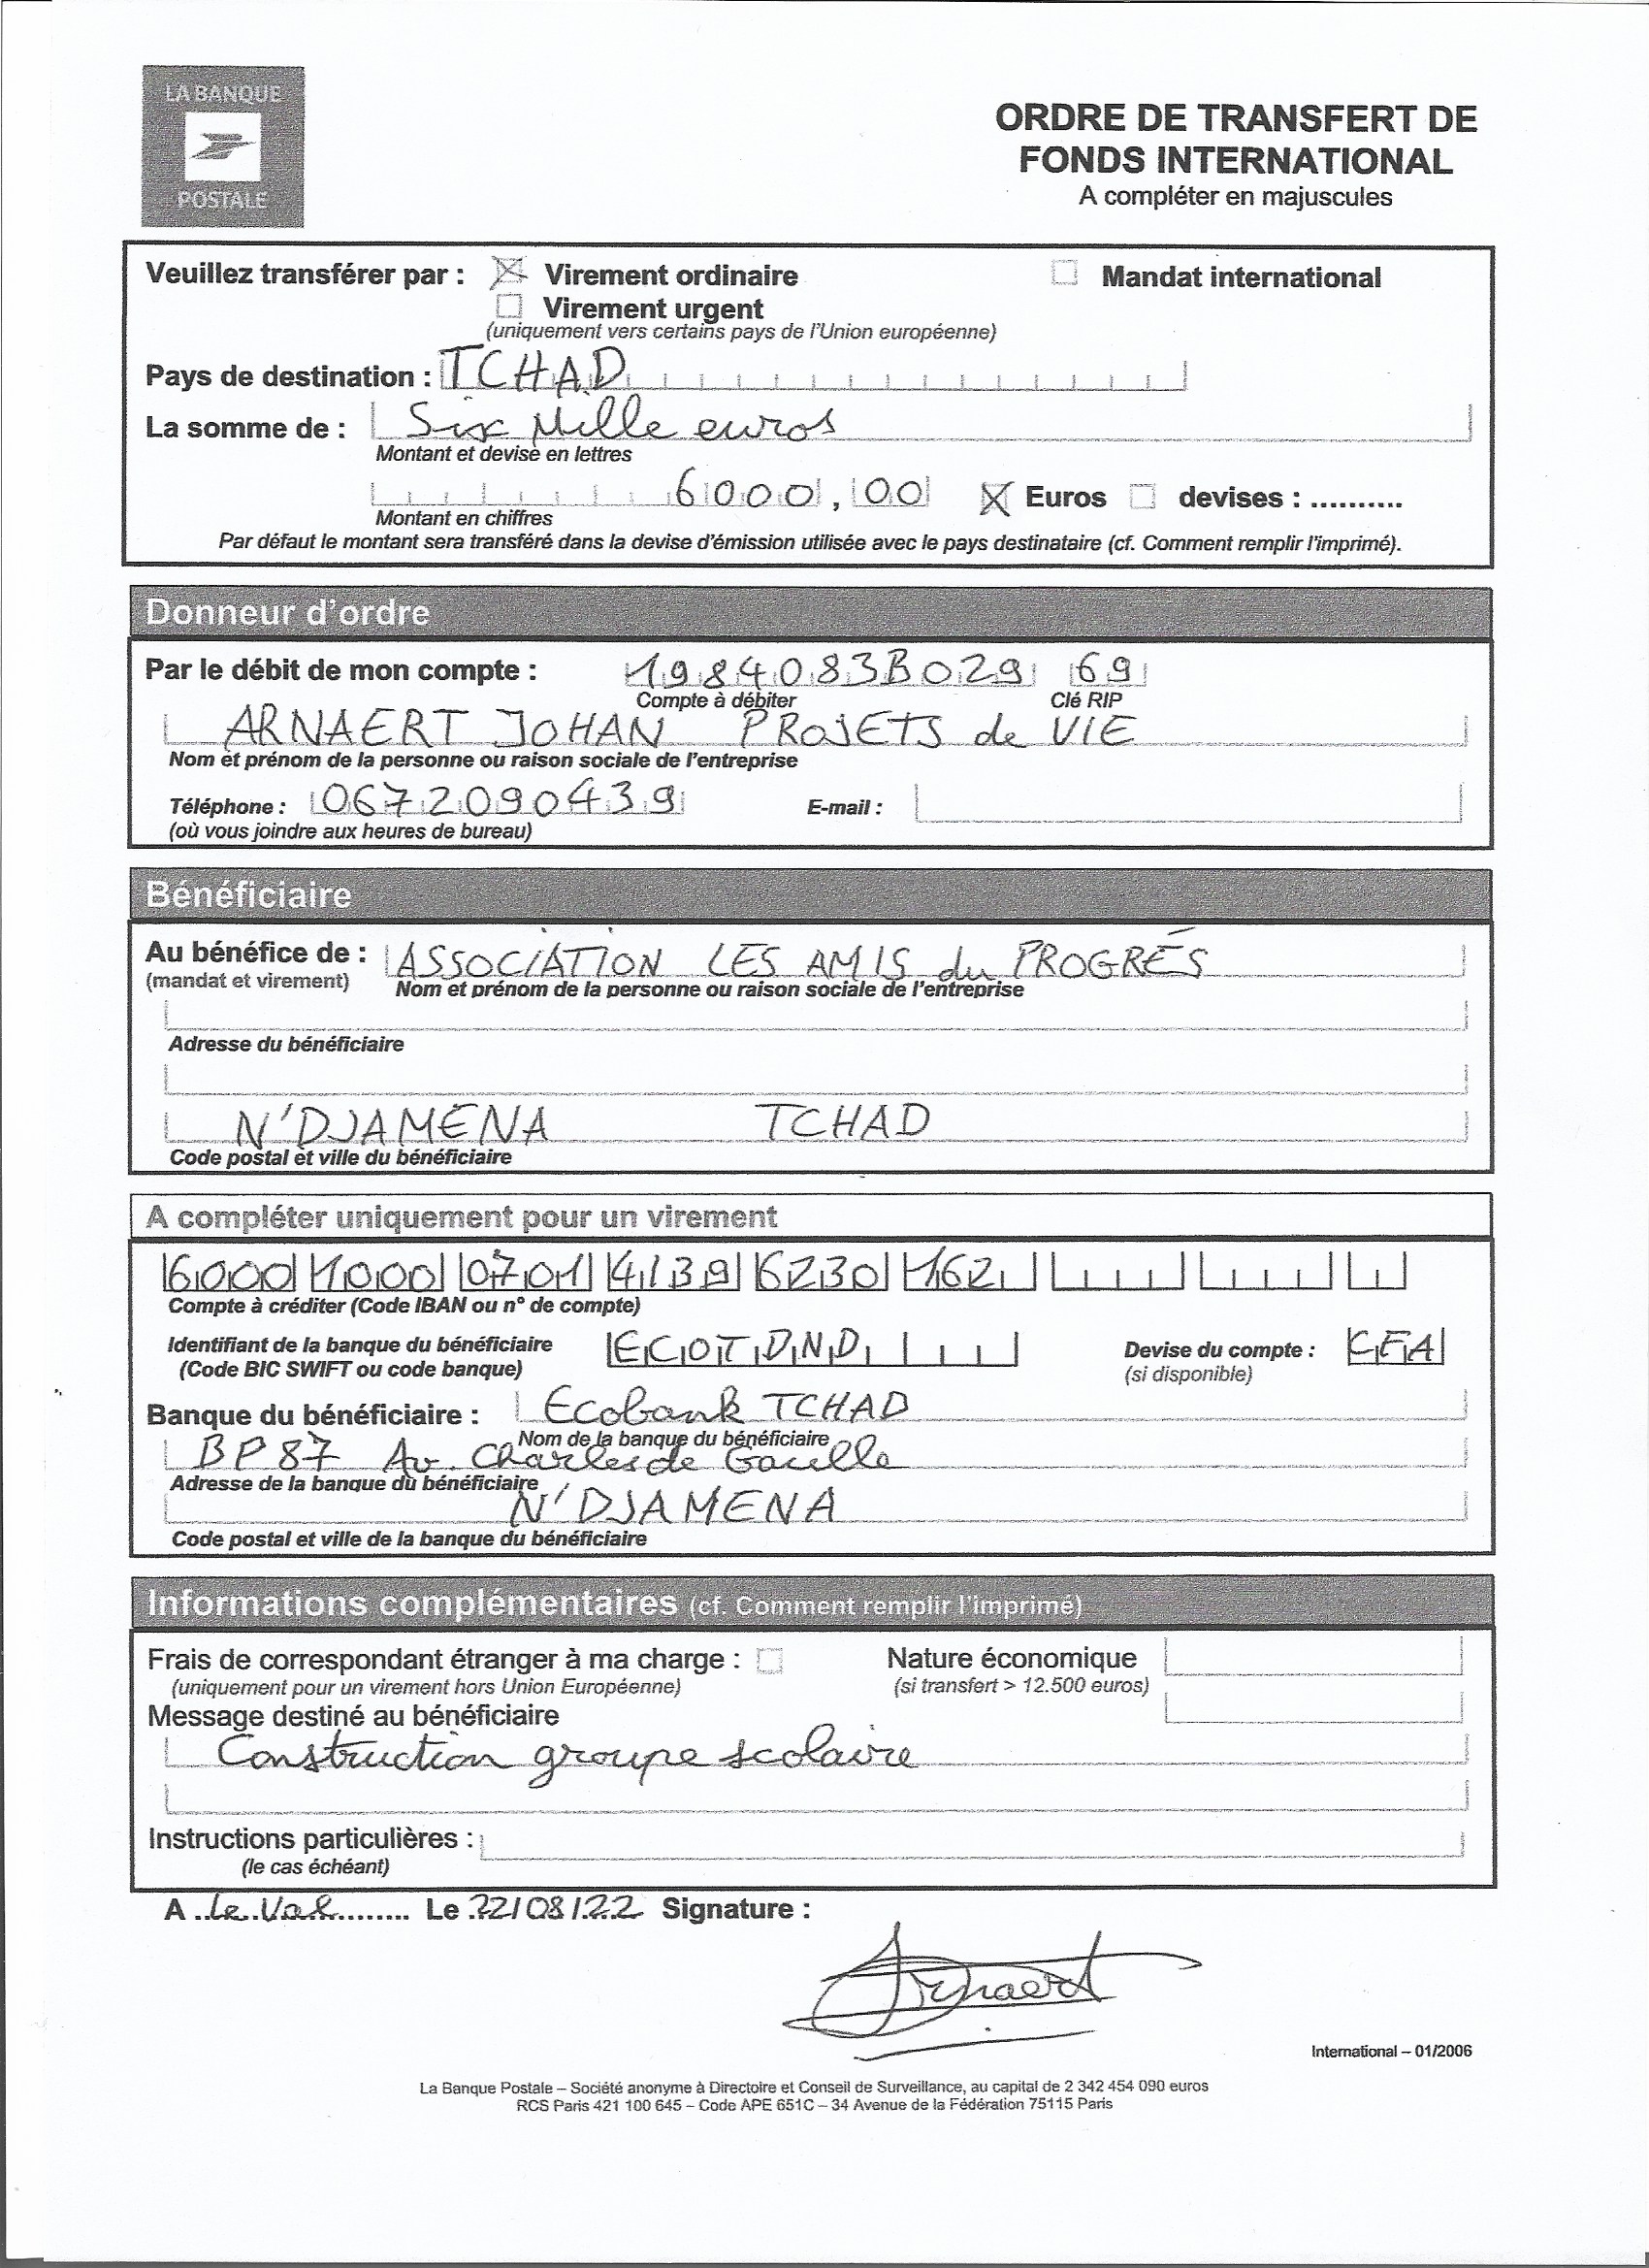 LA BANQUE
POSTALE
ORDRE DE TRANSFERT DE
FONDS INTERNATIONAL
A compléter en majuscules
Veuillez transférer par : Virement ordinaire Mandat international
Virement urgent
(uniquement vers certains pays de l'Union européenne)
Pays de destination : TCHAD
La somme de : Six Mille euros
Montant et devise en lettres
6000,00 Euros devises : ..........
Montant en chiffres
Par défaut le montant sera transféré dans la devise d'émission utilisée avec le pays destinataire (cf. Comment remplir l'imprimé).
Donneur d'ordre
Par le débit de mon compte : 1984083B029 69
Compte à débiter Clé RIP
ARNAERT JOHAN PROJETS de VIE
Nom et prénom de la personne ou raison sociale de l'entreprise
Téléphone : 0672090439 E-mail :
(où vous joindre aux heures de bureau)
Bénéficiaire
Au bénéfice de : ASSOCIATION LES AMIS du PROGRÉS
(mandat et virement) Nom et prénom de la personne ou raison sociale de l'entreprise
Adresse du bénéficiaire
N'DJAMENA TCHAD
Code postal et ville du bénéficiaire
A compléter uniquement pour un virement
6000 1000 0701 4139 6230 162
Compte à créditer (Code IBAN ou n° de compte)
Identifiant de la banque du bénéficiaire ECOTDND Devise du compte : CFA
(Code BIC SWIFT ou code banque) (si disponible)
Banque du bénéficiaire : Ecobank TCHAD
Nom de la banque du bénéficiaire
BP 87 Av. Charles de Gaulle
Adresse de la banque du bénéficiaire
N'DJAMENA
Code postal et ville de la banque du bénéficiaire
Informations complémentaires (cf. Comment remplir l'imprimé)
Frais de correspondant étranger à ma charge : Nature économique
(uniquement pour un virement hors Union Européenne) (si transfert > 12.500 euros)
Message destiné au bénéficiaire
Construction groupe scolaire
Instructions particulières :
(le cas échéant)
A ..Le Val......... Le 22/08/22 Signature :
Arnaert
International – 01/2006
La Banque Postale – Société anonyme à Directoire et Conseil de Surveillance, au capital de 2 342 454 090 euros
RCS Paris 421 100 645 – Code APE 651C – 34 Avenue de la Fédération 75115 Paris